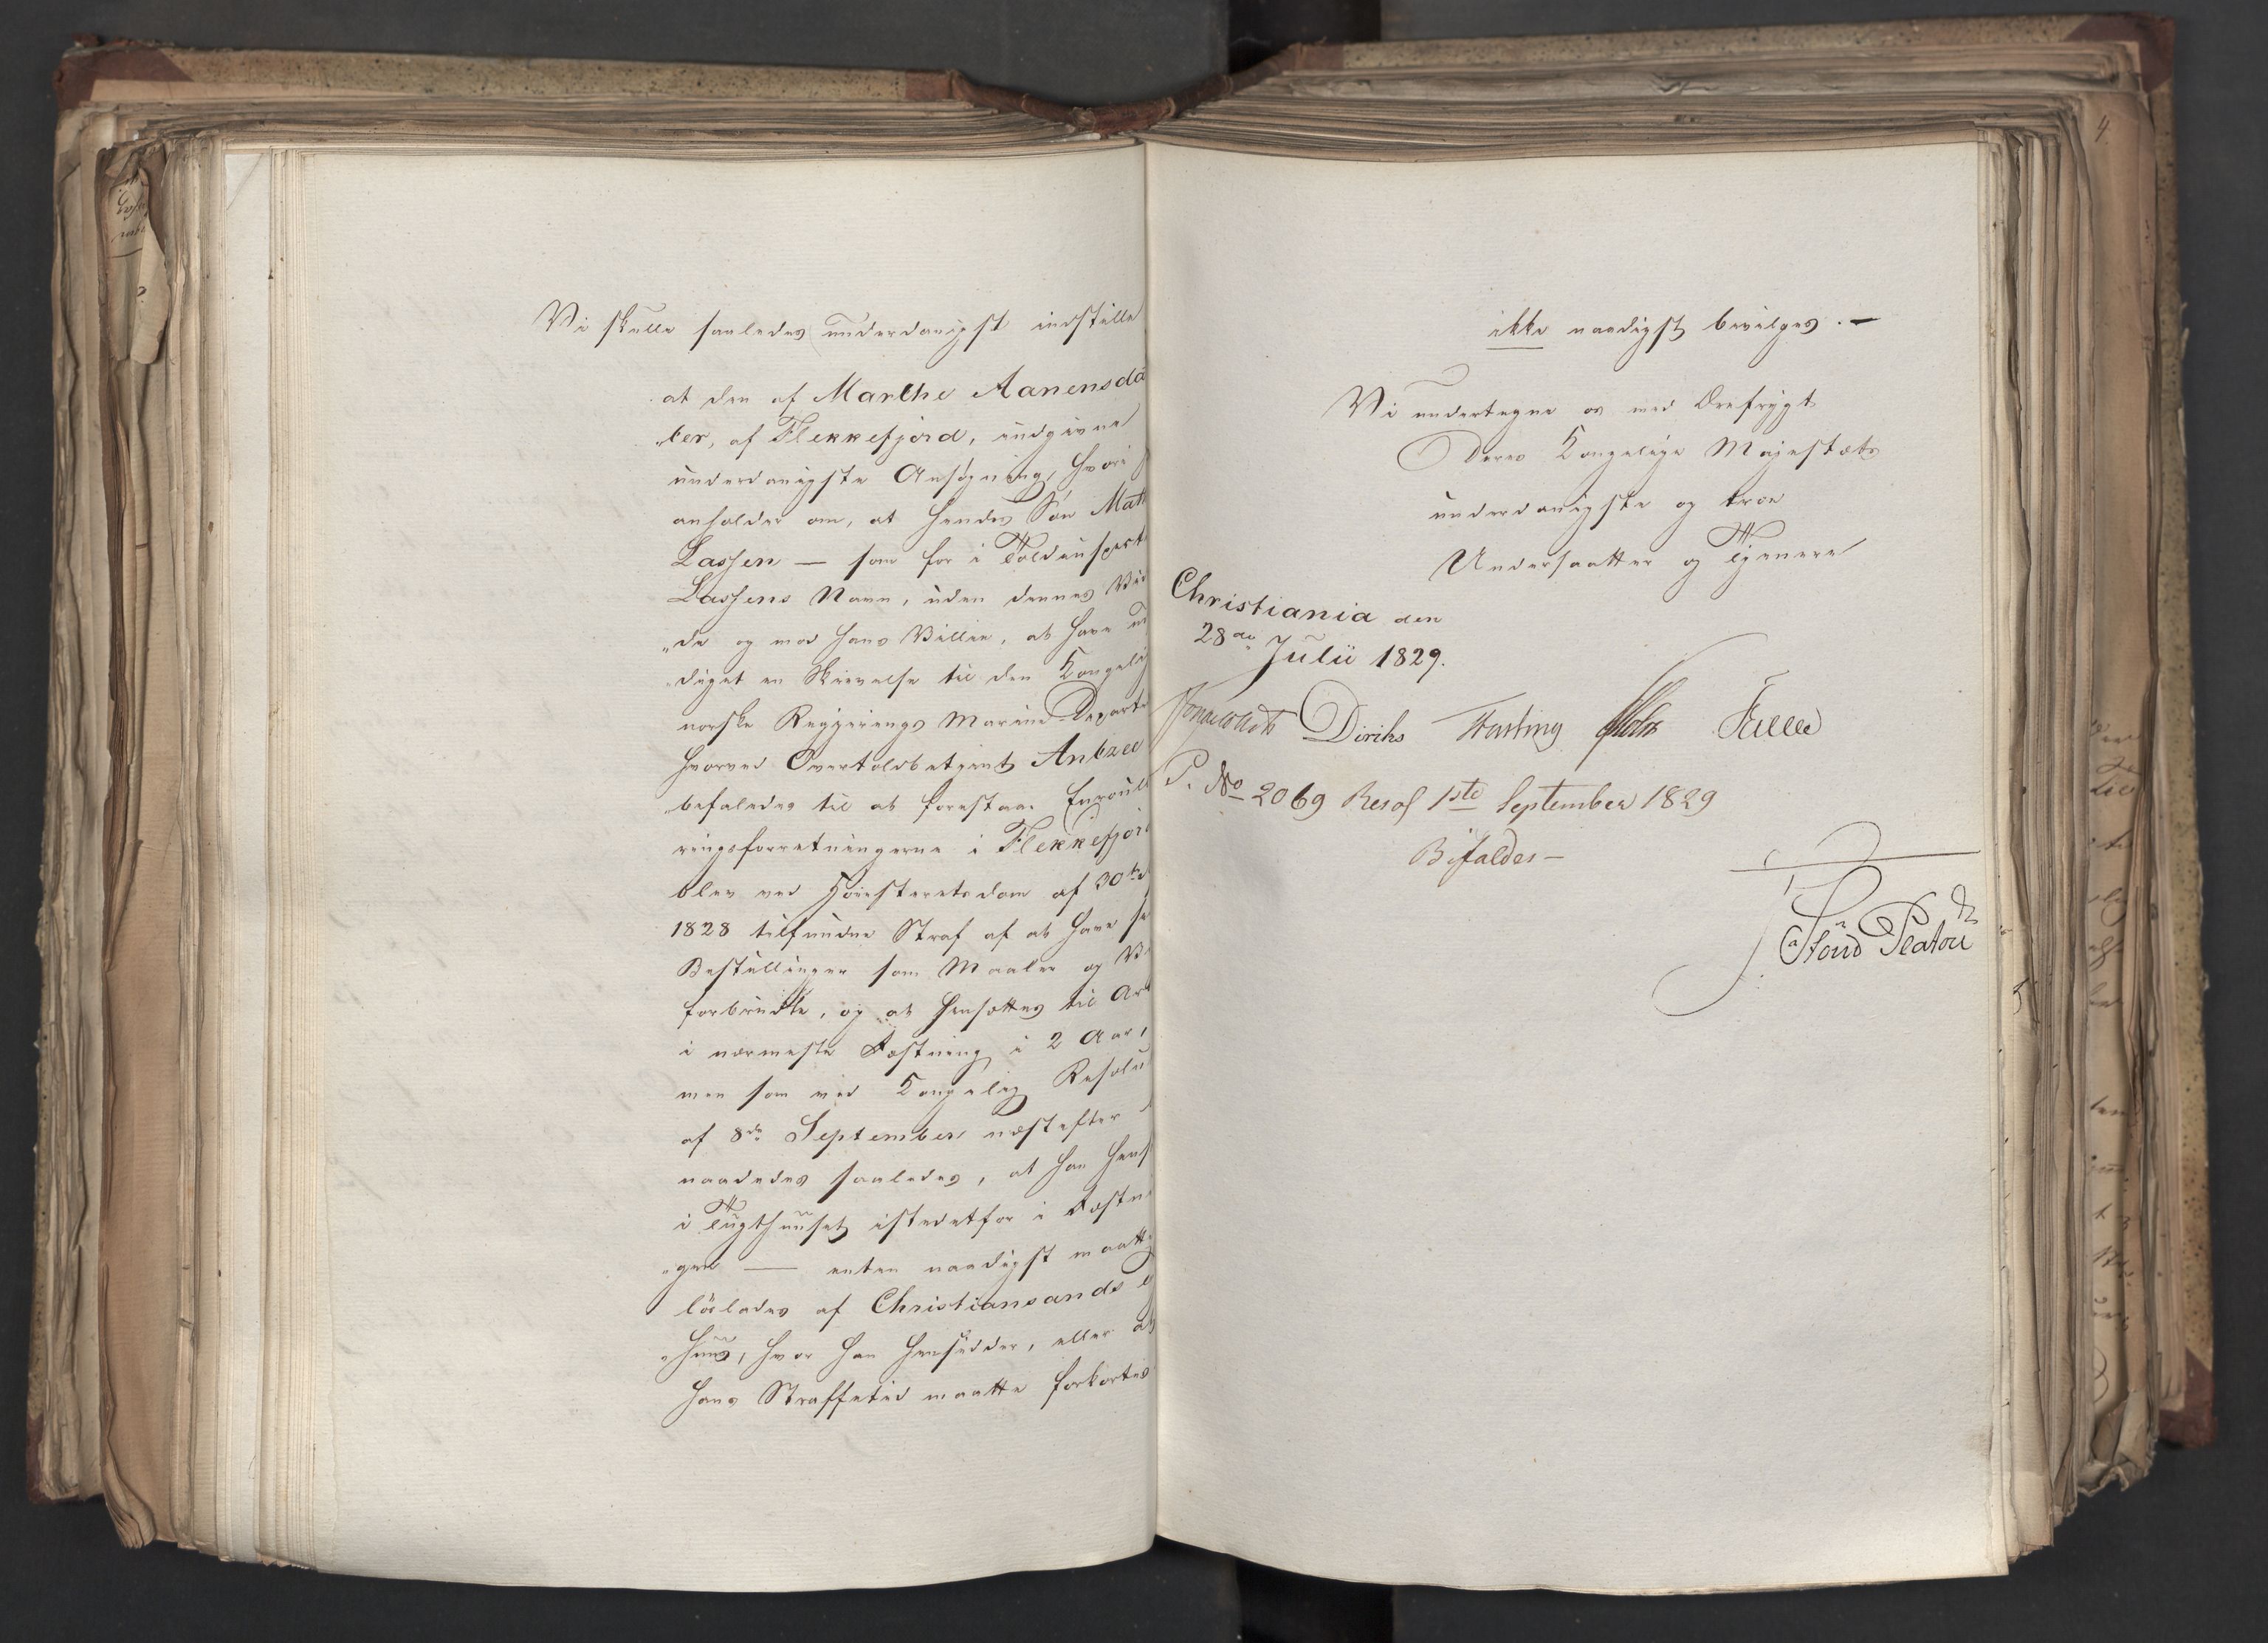 Vi skulle saaledes underdanigst indstille
at den af Marthe Aanensdat
„ter, af Flekkefjord, indgivne
underdanigste Ansøgning, hvori
anholder om, at hendes Søn Math
Lassen — som for i Toldinspect
Lassens Navn, uden dennes Vi
„de og mod hans Villie, at have
„diget en Skrivelse til den Kongelig
norske Regjerings Marine-Departe
hvorved Overtoldbetjent Antzee
„befaledes til at forestaae Enroulle
ringsforretningerne i Flekkefjord
blev ved Høiesteretsdom af 30te
1828 tilfunden Straf af at have
Bestillinger som Maaler og
forbrudte, og at hensættes til Ar
i nærmeste Fæstning i 2 Aar,
men som ved Kongelig Resolu
af 8de September næstefter
naadedes saaledes, at han hens
i Tugthuuset istedetfor i Fæstni
„gen — enten naadigst maatte
løslades af Christiansands
„huus, hvor han hensidder, eller at
hans Straffetid maatte forkortes
ikke naadigst bevilges. —
Vi undertegne os med Ærefrygt
Deres Kongelige Majestæts
underdanigste og troe
Undersaatter og Tjenere
Christiania den
28de Julii 1829.
Diriks Fasting Holst
P. No 2069 Resol 1ste September 1829
Bifaldes —
Stoud Platou
4.